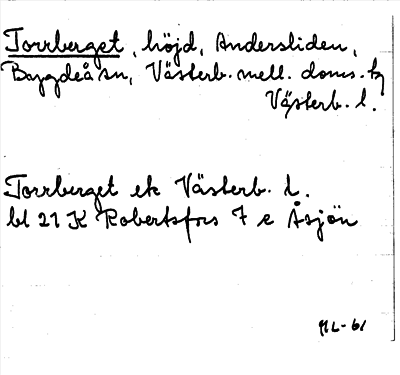 Torrberget, höjd, Andersliden,
Bygdeå sn, Västerb. mell. doms. tg
Västerb. l.
Torrberget ek Västerb. l.
bl 21 K Robertsfors 7 e Åsjön
ML-61